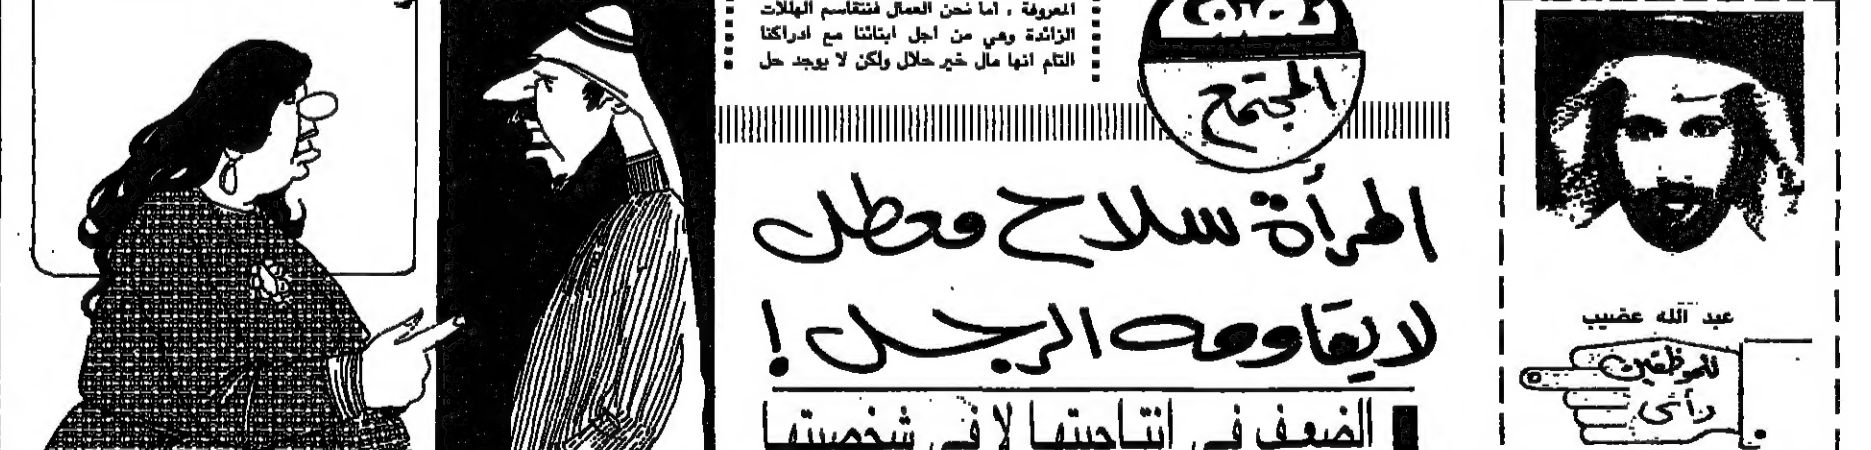 المعروفة ، أما نحن العمال فنتقاسم الهللات
الزائدة وهي من أجل أبنائنا مع ادراكنا
التام انها مال خير حلال ولكن لا يوجد حل
المجتمع
المرأة سلاح معطل
لا يقاومه الرجل !
الضعف في انتاجيتها لا في شخصيتها
عبد الله عضيب
للموظفين
رأي